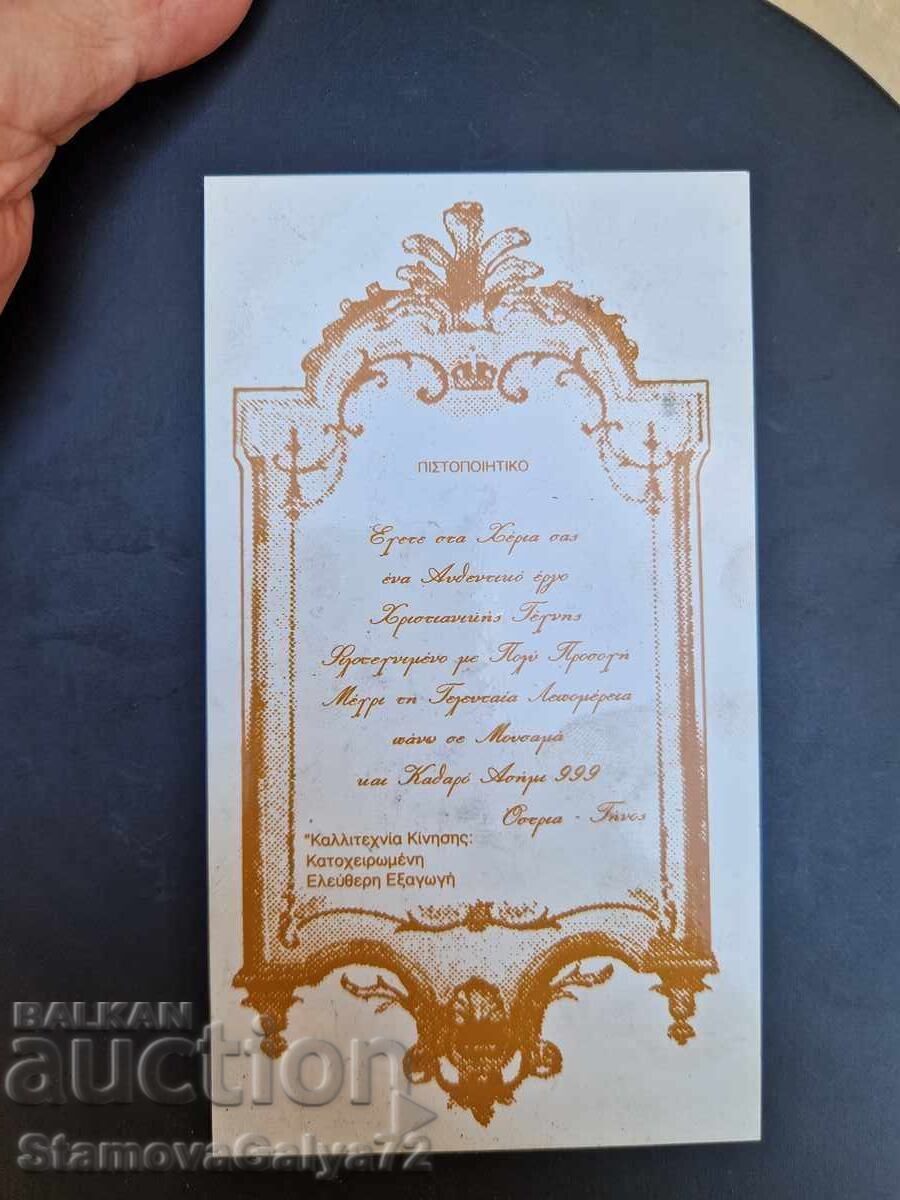 ΠΙΣΤΟΠΟΙΗΤΙΚΟ
Εχετε στα Χέρια σας
ένα Αυθεντικό έργο
Χριστιανικής Τέχνης
Φιλοτεχνιμένο με Πολύ Προσοχή
Μέχρι τη Τελευταία Λεπομέρεια
πάνω σε Μουσαμά
και Καθαρό Ασήμι 999
Οστρια - Τήνος
"Καλλιτεχνία Κίνησης:
Κατοχειρωμένη
Ελεύθερη Εξαγωγή
BALKAN
auction
StamovaGalya72